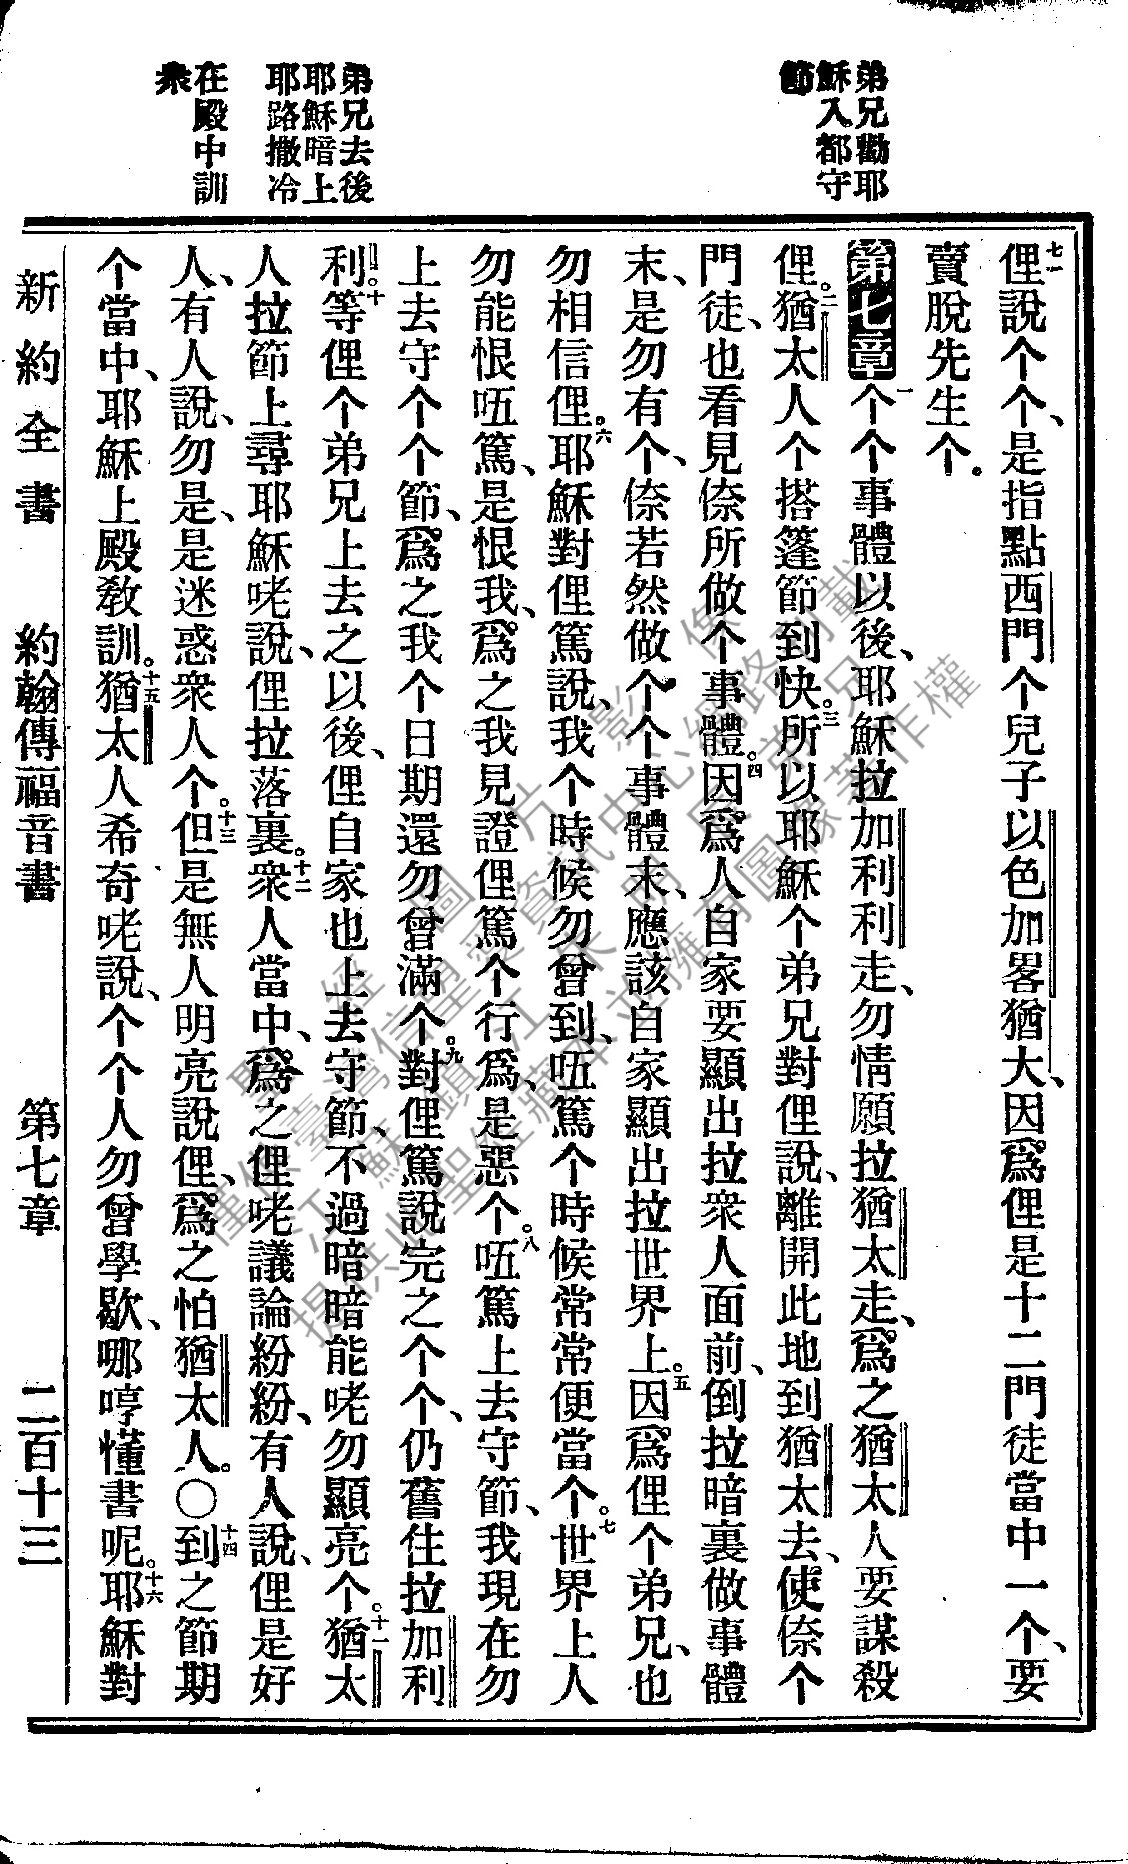 弟兄勸耶
穌入都守
節
弟兄去後
耶穌暗上
耶路撒冷
在殿中訓
衆
七一俚說个个、是指點西門个兒子以色加畧猶大、因爲俚是十二門徒當中一个、要
賣脫先生个。
第七章 一个个事體以後、耶穌拉加利利走、勿情願拉猶太走、爲之猶太人要謀殺
俚。二猶太人个搭篷節到快。三所以耶穌个弟兄對俚說、離開此地到猶太去、使倷个
門徒、也看見倷所做个事體。四因爲人自家要顯出拉衆人面前、倒拉暗裏做事體
末、是勿有个、倷若然做个个事體末、應該自家顯出拉世界上。五因爲俚个弟兄、也
勿相信俚。六耶穌對俚篤說、我个時候勿曾到、唔篤个時候常常便當个。七世界上人
勿能恨唔篤、是恨我、爲之我見證俚篤个行爲、是惡个。八唔篤上去守節、我現在勿
上去守个个節、爲之我个日期還勿曾滿个。九對俚篤說完之个个、仍舊住拉加利
利。十等俚个弟兄上去之以後、俚自家也上去守節、不過暗暗能咾勿顯亮个。十一猶太
人拉節上尋耶穌咾說、俚拉落裏。十二衆人當中、爲之俚咾議論紛紛、有人說、俚是好
人、有人說、勿是、是迷惑衆人个。十三但是無人明亮說俚、爲之怕猶太人。〇十四到之節期
个當中、耶穌上殿敎訓。十五猶太人希奇咾說、个个人勿曾學歇、哪哼懂書呢。十六耶穌對
新約全書 約翰傳福音書 第七章 二百十三
聖經圖片影像
僅供臺灣信望愛資訊中心網路刊載